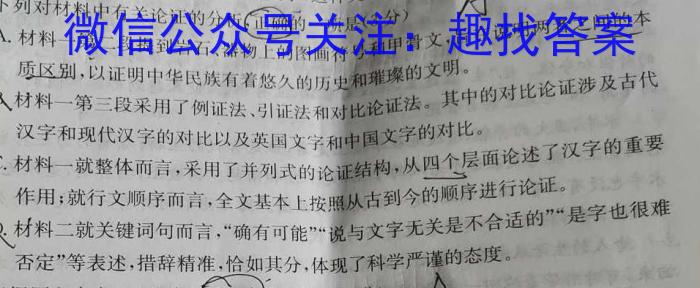 列对材料中有关论证的分析,正确的
微信公众号关注:趣找答案
A. 材料一
质区别,以证明中华民族有着悠久的历史和璀璨的文明。
材料一第三段采用了例证法、引证法和对比论证法。其中的对比论证涉及古代
汉字和现代汉字的对比以及英国文字和中国文字的对比。
C. 材料一就整体而言,采用了并列式的论证结构,从四个层面论述了汉字的重要
作用;就行文顺序而言,全文基本上按照从古到今的顺序进行论证。
材料二就关键词句而言,“确有可能”“说与文字无关是不合适的”“是字也很难
否定”等表述,措辞精准,恰如其分,体现了科学严谨的态度。